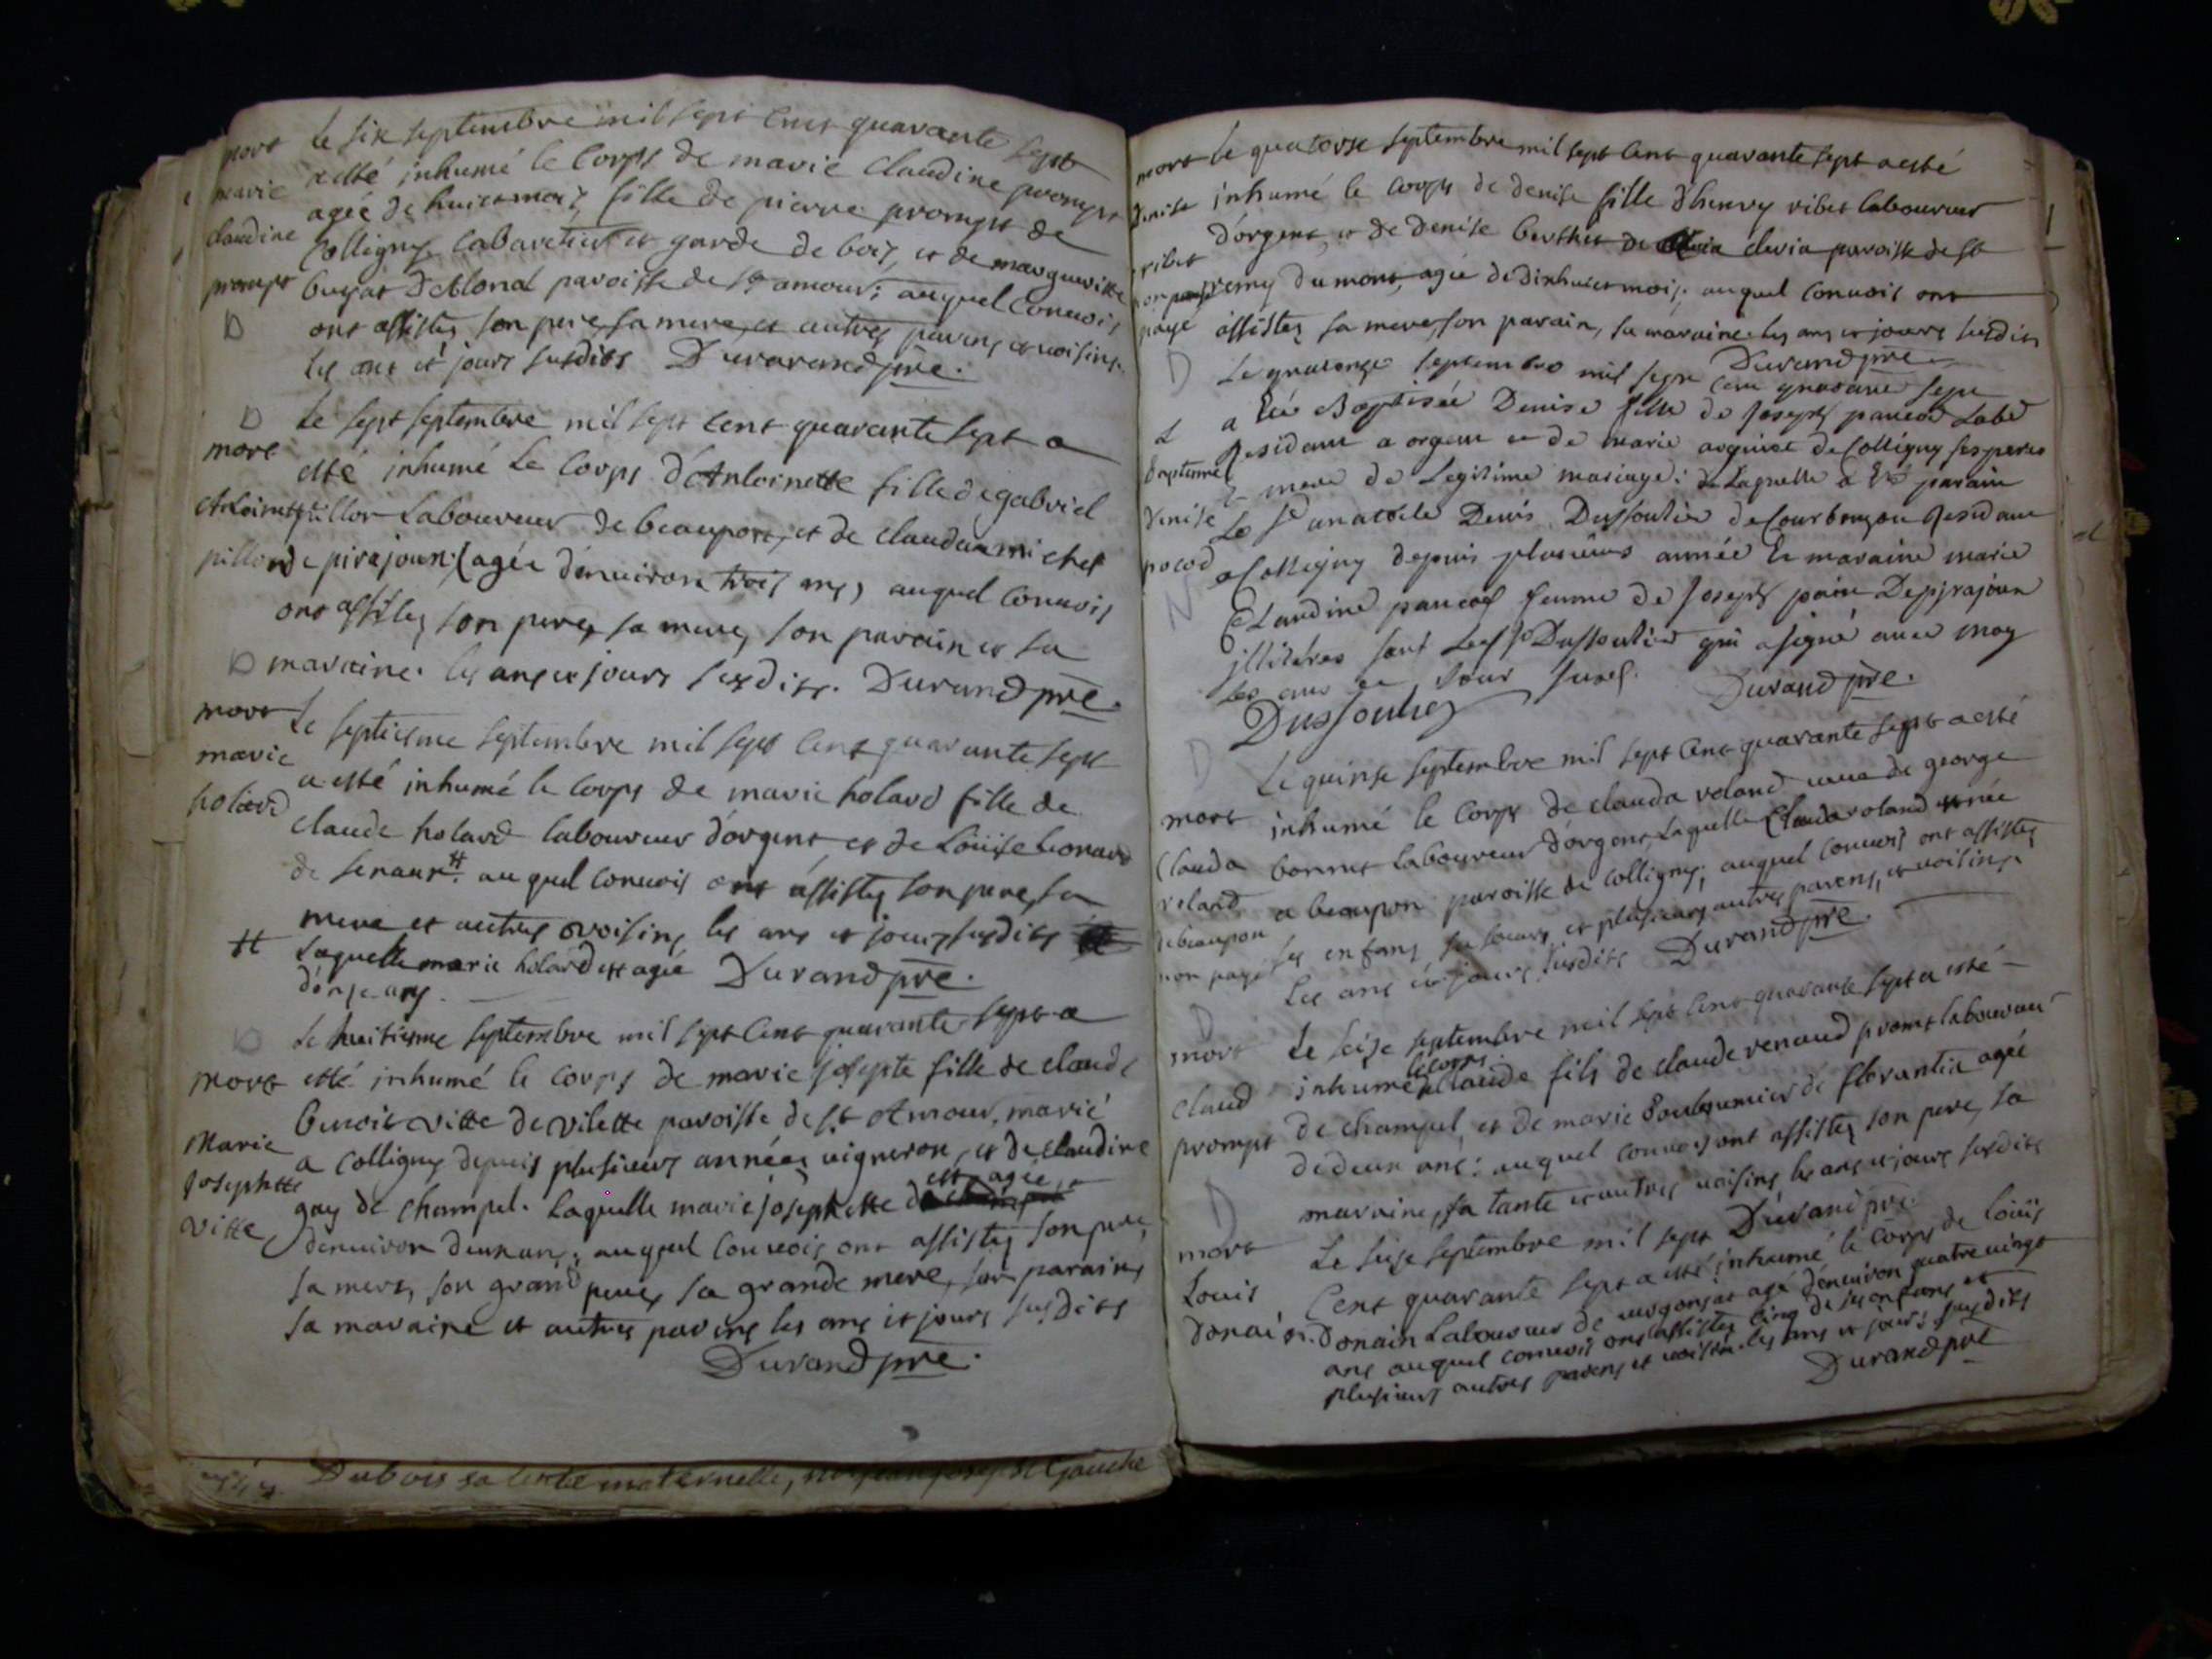 mort
marie
claudine
prompt
D
le six septembre mil sept cent quarante sept
a esté inhumé le corps de marie claudine prompt
agée de huict mois fille de pierre prompt de
Colligny cabaretier et garde de bois, et de marguerite
buyat paroisse de st amour; auquel convois
ont assistez son pere, sa mere, et autres parens et voisins
les ans et jours susdits Durand pre.
D
mort
Antoinette
pillon
le sept septembre mil sept cent quarante sept a
esté inhumé Le corps d'Antoinette fille de gabriel
pillon Laboureur de beaupont, et de clauda michel
de pirajoux; (agée d'enuiron trois ans) auquel convois
ont assistez son pere, sa mere, son parain et sa
maraine. les ans et jours susdits. Durand pre.
D
mort
marie
holard
le septiesme septembre mil sept cent quarante sept
a esté inhumé le corps de marie holard fille de
claude holard laboureur d'orgent et de Loüise
de # auquel convois ont assistez son pere, sa
mere et autres voisins les ans et jours susdits
# Laquelle marie holard est agée Durand pre.
d'onze ans.
D
mort
Marie
Josephtte
vitte
le huitiesme septembre mil sept cent quarante sept a
esté inhumé le corps de marie josepte fille de claude
benoit vitte de vilette paroisse de st Amour, marié
a colligny depuis plusieurs années vigneron, et de claudine
gay de champel. Laquelle marie josephtte est agée
d'enuiron deux ans; auquel convois ont assistez son pere,
sa mere, son grand pere, sa grande mere, son parain,
sa maraine et autres parens les ans et jours susdits
Durand pre.
Dubois sa tante maternelle,
mort
denise
ribet
non
payé
le quatorse septembre mil sept cent quarante sept a esté
inhumé le corps de denise fille d'henry ribet laboureur
d'orgent, et de denise berthet de clevia paroisse de st
remy du mont, agée de dixhuict mois; auquel convois ont
assistez sa mere, son parain, sa maraine les ans et jours susdits
Durand pre
D
Baptême
denise
pocod
Le quatorze septembre mil sept cent quarante sept
a été Baptisée Denise fille de Joseph Labr
Residant a orgent et de marie de Colligny ses peres
& mere de Legitime mariage: de Laquelle a Eté parain
Le sr anatoile Denis Dussoulier de Residant
a Colligny depuis plusieurs année & maraine marie
Claudine femme de Joseph Depirajoux
jllitéres sauf Le sr Dussoulier qui a signé auec moy
les ans et Jour susd.
Dussoulier
Durand pre.
D
mort
Clauda
roland
debeaupon
non payé
Le quinse septembre mil sept cent quarante sept a esté
inhumé le corps de clauda roland de george
bonnet laboureur d'orgent, Laquelle Clauda roland née
a beaupon paroisse de colligny; auquel convois ont assistez
ses enfans, sa soeur, et plusieurs autres parens, et voisins.
Les ans et jours susdits Durand pre.
D
mort
claud
prompt
Le seize septembre mil sept cent quarante sept a esté
inhumé le corps de claude fils de claude renaud promt laboureur
de champel, et de marie de florantia agée
de deux ans: auquel convois ont assistez son pere, sa
maraine, sa tante et autres voisins les ans et jours susdits
Durand pre.
D
mort
Louis
Donain
Le seize septembre mil sept
Cent quarante sept a esté inhumé le corps de loüis
Donain Laboureur de agé d'enuiron quatre vingt
ans auquel convois ont assistez cinq de ses enfans et
plusieurs autres parens et voisin. les ans et jours susdits
Durand pre